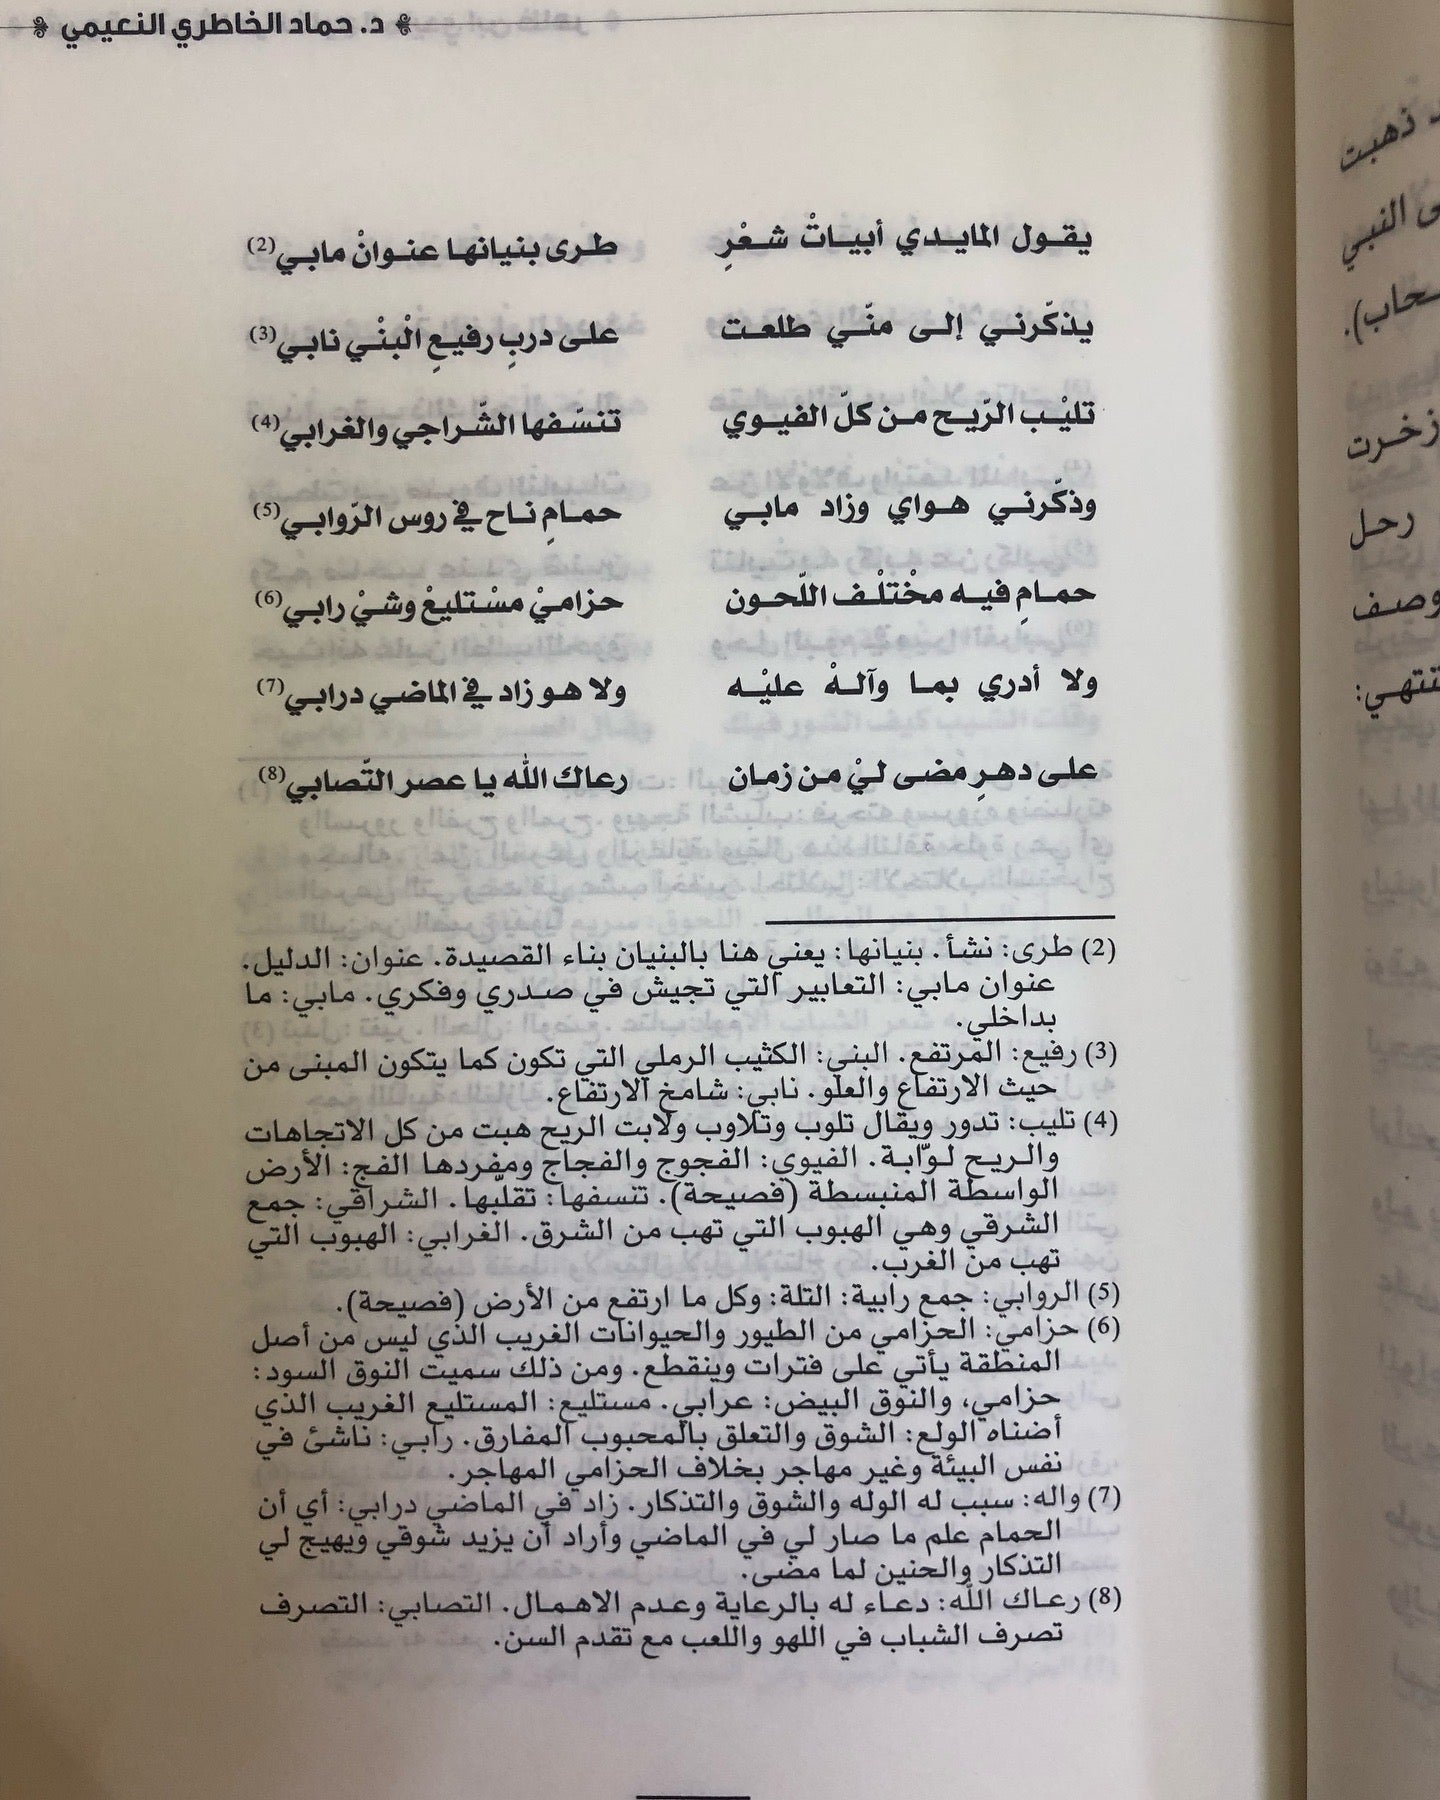 د. حماد الخاطري النعيمي
يقول المايدي أبياتْ شعْرِ طرى بنيانها عنوانْ مابي (2)
يذكّرني إلى منّي طلعت على دربٍ رفيعِ الْبنْي نابي (3)
تليْب الرّيح من كلّ الفيوي تنسّفها الشّراجي والغرابي (4)
وذكّرني هواي وزاد مابي حمامِ ناح في روس الرّوابي (5)
حمامِ فيه مخْتلْف اللّحون حزاميْ مسْتليعْ وشيْ رابي (6)
ولا أدري بما وآلهْ عليْه ولا هو زاد في الماضي درابي (7)
على دهرِ مضى ليْ من زمان رعاك الله يا عصر التّصابي (8)
(2) طرى: نشأ. بنيانها: يعني هنا بالبنيان بناء القصيدة. عنوان: الدليل.
عنوان مابي: التعابير التي تجيش في صدري وفكري. مابي: ما
بداخلي.
(3) رفيع: المرتفع. البني: الكثيب الرملي التي تكون كما يتكون المبنى من
حيث الارتفاع والعلو. نابي: شامخ الارتفاع.
(4) تليب: تدور ويقال تلوب وتلاوب ولابت الريح هبت من كل الاتجاهات
والريح لوّابة. الفيوي: الفجوج والفجاج ومفردها الفج: الأرض
الواسطة المنبسطة (فصيحة). تنسفها: تقلّبها. الشراقي: جمع
الشرقي وهي الهبوب التي تهب من الشرق. الغرابي: الهبوب التي
تهب من الغرب.
(5) الروابي: جمع رابية: التلة: وكل ما ارتفع من الأرض (فصيحة).
(6) حزامي: الحزامي من الطيور والحيوانات الغريب الذي ليس من أصل
المنطقة يأتي على فترات وينقطع. ومن ذلك سميت النوق السود:
حزامي، والنوق البيض: عرابي. مستليع: المستليع الغريب الذي
أضناه الولع: الشوق والتعلق بالمحبوب المفارق. رابي: ناشئ في
نفس البيئة وغير مهاجر بخلاف الحزامي المهاجر.
(7) واله: سبب له الوله والشوق والتذكار. زاد في الماضي درابي: أي أن
الحمام علم ما صار لي في الماضي وأراد أن يزيد شوقي ويهيج لي
التذكار والحنين لما مضى.
(8) رعاك الله: دعاء له بالرعاية وعدم الاهمال. التصابي: التصرف
تصرف الشباب في اللهو واللعب مع تقدم السن.
ذهبت
النبي
زخرت
رحل